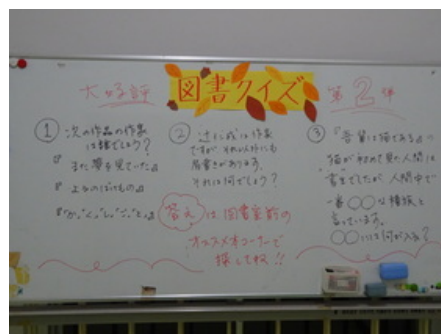 大好評
図書クイズ
第2弾
① 次の作品の作家
は誰でしょう?
『また夢を見ていた』
『よるのばけもの』
『か「」く「」し「」ご「」と「』
② 辻仁成は作家
ですが、それ以外にも
肩書きがあります。
それは何でしょう?
③ 『吾輩は猫である』で
猫が初めて見た人間は
"書生"でしたが、人間中で
一番〇〇な種族と
言っています。
〇〇には何が入る?
答えは図書室前の
オススメ本コーナーで
探してね!!